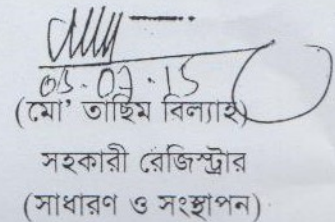 05.07.15
(মো' তাছিম বিল্যাহ)
সহকারী রেজিস্ট্রার
(সাধারণ ও সংস্থাপন)